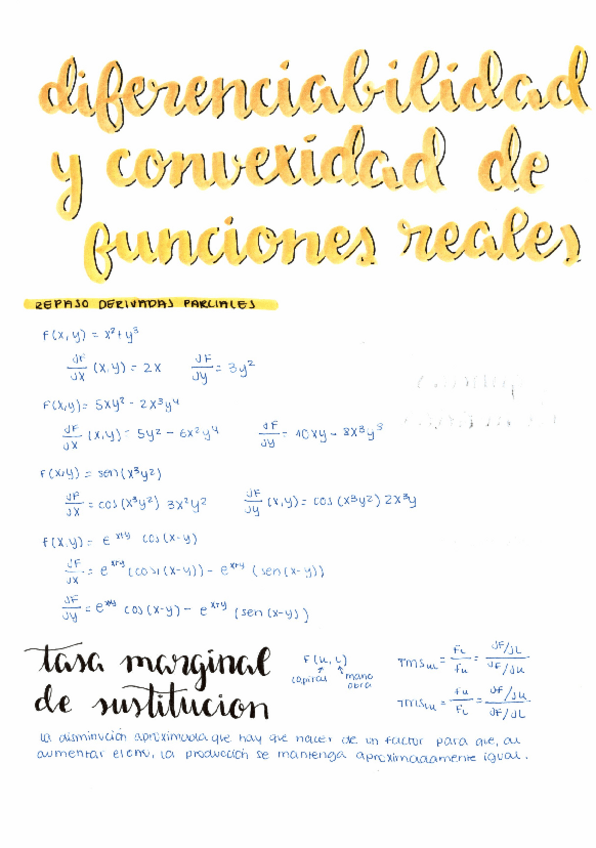 diferenciabilidad
y convexidad de
funciones reales
REPASO DERIVADAS PARCIALES
F(x,y) = x²+y³
∂F/∂x (x,y) = 2x ∂F/∂y = 3y²
F(x,y) = 5xy² - 2x³y⁴
∂F/∂x (x,y) = 5y² - 6x²y⁴ ∂F/∂y = 10xy - 8x³y³
F(x,y) = sen(x³y²)
∂F/∂x = cos(x³y²) 3x²y² ∂F/∂y (x,y) = cos(x³y²) 2x³y
F(x,y) = e^(x+y) cos(x-y)
∂F/∂x = e^(x+y) (cos(x-y)) - e^(x+y) (sen(x-y))
∂F/∂y = e^(x+y) cos(x-y) - e^(x+y) (sen(x-y))
tasa marginal
de sustitucion
F(K,L)
capital mano
obra
TMS = FL/FK = ∂F/∂L / ∂F/∂K
TMS = FK/FL = ∂F/∂K / ∂F/∂L
La disminución aproximada que hay que hacer de un factor para que, al
aumentar el otro, la producción se mantenga aproximadamente igual.